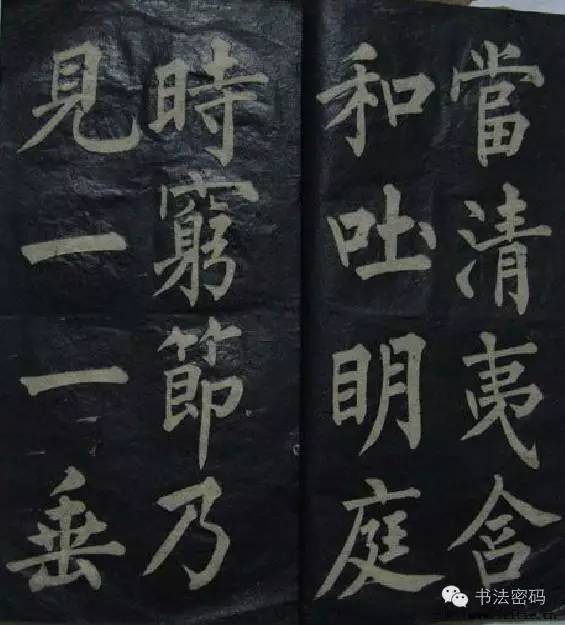 當清夷含
和吐明庭
時窮節乃
見一一垂
书法密码